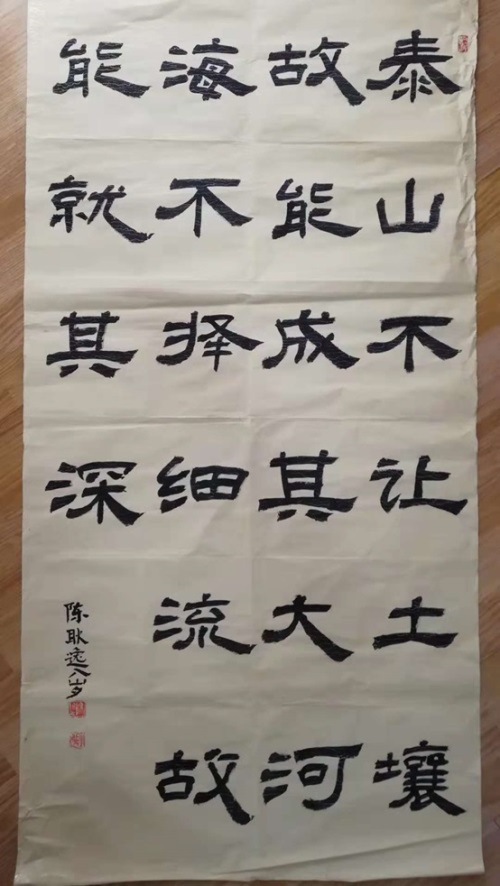 泰山不让土壤
故能成其大河
海不择细流故
能就其深
陈耿逸八岁